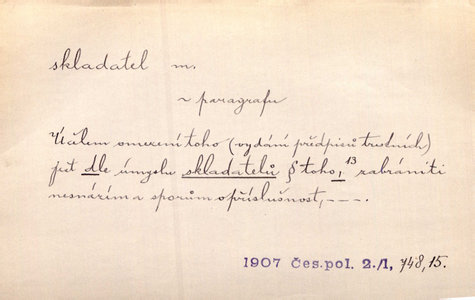 skladatel m.
~ paragrafu
Účelem omezení toho (vydání předpisů trestních)
jest dle úmyslu skladatelů § toho,13 zabrániti
nesnázím a sporům o příslušnost, ---.
1907 Čes.pol. 2./1, 748,15.